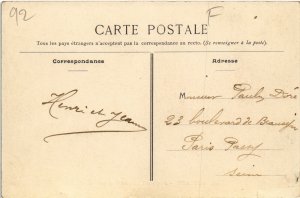 92
F
CARTE POSTALE
Tous les pays étrangers n'acceptent pas la correspondance au recto. (Se renseigner à la poste).
Correspondance
Adresse
Henri et Jean
Monsieur Paul Doré
23 boulevard de Beauséjour
Paris Passy
Seine